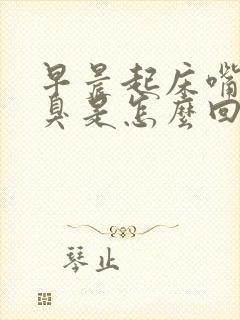 早晨起床嘴
臭是怎麼回
琴止